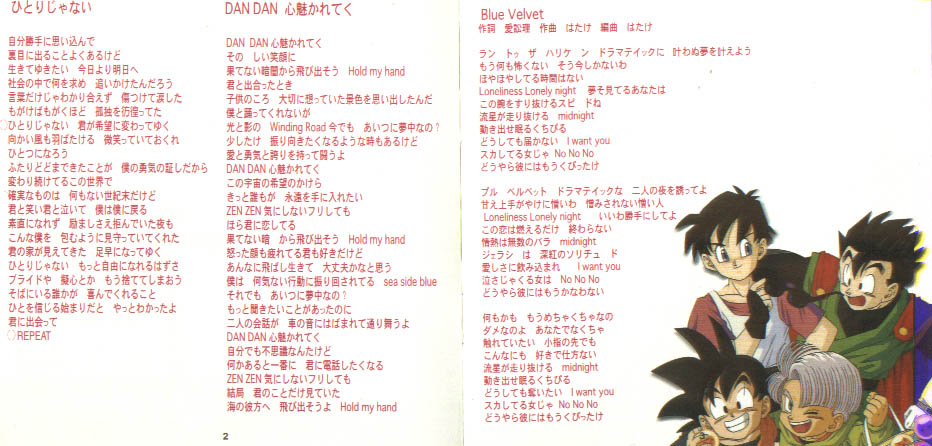 ひとりじゃない
自分勝手に思い込んで
裏目に出ることよくあるけど
生きてゆきたい　今日より明日へ
社会の中で何を求め　追いかけたんだろう
言葉だけじゃわかり合えず　傷つけて涙した
もがけばもがくほど　孤独を彷徨ってた
○ひとりじゃない　君が希望に変わってゆく
向かい風も羽ばたける　微笑っていておくれ
ひとつになろう
ふたりどどまできたことが　僕の勇気の証しだから
変わり続けてるこの世界で
確実なものは　何もない世紀末だけど
君と笑い君と泣いて　僕は僕に戻る
素直になれず　励ましさえ拒んでいた夜も
こんな僕を　包むように見守っていてくれた
君の家が見えてきた　足早になってゆく
ひとりじゃない　もっと自由になれるはずさ
プライドや　凝心とか　もう捨ててしまおう
そばにいる誰かが　喜んでくれること
ひとを信じる始まりだと　やっとわかったよ
君に出会って
○REPEAT
DAN DAN 心魅かれてく
DAN DAN 心魅かれてく
その　しい笑顔に
果てない暗闇から飛び出そう　Hold my hand
君と出会ったとき
子供のころ　大切に想っていた景色を思い出したんだ
僕と踊ってくれないが
光と影の　Winding Road 今でも　あいつに夢中なの？
少しだけ　振り向きたくなるような時もあるけど
愛と勇気と誇りを持って闘うよ
DAN DAN 心魅かれてく
この宇宙の希望のかけら
きっと誰もが　永遠を手に入れたい
ZEN ZEN 気にしないフリしても
ほら君に恋してる
果てない暗　から飛び出そう　Hold my hand
怒った顔も疲れてる君も好きだけど
あんなに飛ばし生きて　大丈夫かなと思う
僕は　何気ない行動に振り回されてる　sea side blue
それでも　あいつに夢中なの？
もっと聞きたいことがあったのに
二人の会話が　車の音にはばまれて通り舞うよ
DAN DAN 心魅かれてく
自分でも不思議なんだけど
何かあると一番に　君に電話したくなる
ZEN ZEN 気にしないフリしても
結局　君のことだけ見ていた
海の彼方へ　飛び出そうよ　Hold my hand
2
Blue Velvet
作詞　愛訟理　作曲　はたけ　編曲　はたけ
ラン　トゥ　ザ　ハリケ　ン　ドラマテイックに　叶わぬ夢を計えよう
もう何も怖くない　そう今しかないわ
ほやほやしてる時間はない
Loneliness Lonely night　夢そ見てるあなたは
この腕をすり抜けるスピ　ドね
流星が走り抜ける　midnight
動き出せ眠るくちびる
どうしても届かない I want you
スカしてる女じゃ No No No
どうやら彼にはもうくびったけ
ブル　ベルベット　ドラマテイックな　二人の夜を誘ってよ
甘え上手がやけに憎いわ　憎みされない憎い人
Loneliness Lonely night　いいわ勝手にしてよ
この恋は燃えるだけ　終わらない
情熱は無数のバラ　midnight
ジェラシ　は　深紅のソリチュ　ド
愛しさに飲み込まれ　I want you
泣さじゃくる女は　No No No
どうやら彼にはもうかなわない
何もかも　もうめちゃくちゃなの
ダメなのよ　あなたでなくちゃ
触れていたい　小指の先でも
こんなにも　好きで仕方ない
流星が走り抜ける　midnight
動き出せ眠るくちびる
どうしても奪いたい　I want you
スカしてる女じゃ No No No
どうやら彼にはもうくびったけ